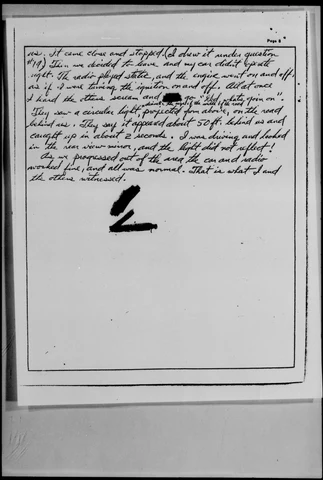 Page 8
us. It came close and stopped. (I drew it under question
#19) Then we decided to leave, and my car didn't operate
right. The radio played static, and the engine went on and off,
as if I was turning the ignition on and off. All at once
I heard the others scream and go "Hey, what's going on".
They saw a circular light, projected from above, on the road
behind us. They say it appeared about 50 ft. behind us and
caught up in about 2 seconds. I was driving and looked
in the rear view mirror, and the light did not reflect!
As we progressed out of the area the car and radio
worked fine, and all was normal. That is what I and
the others witnessed.